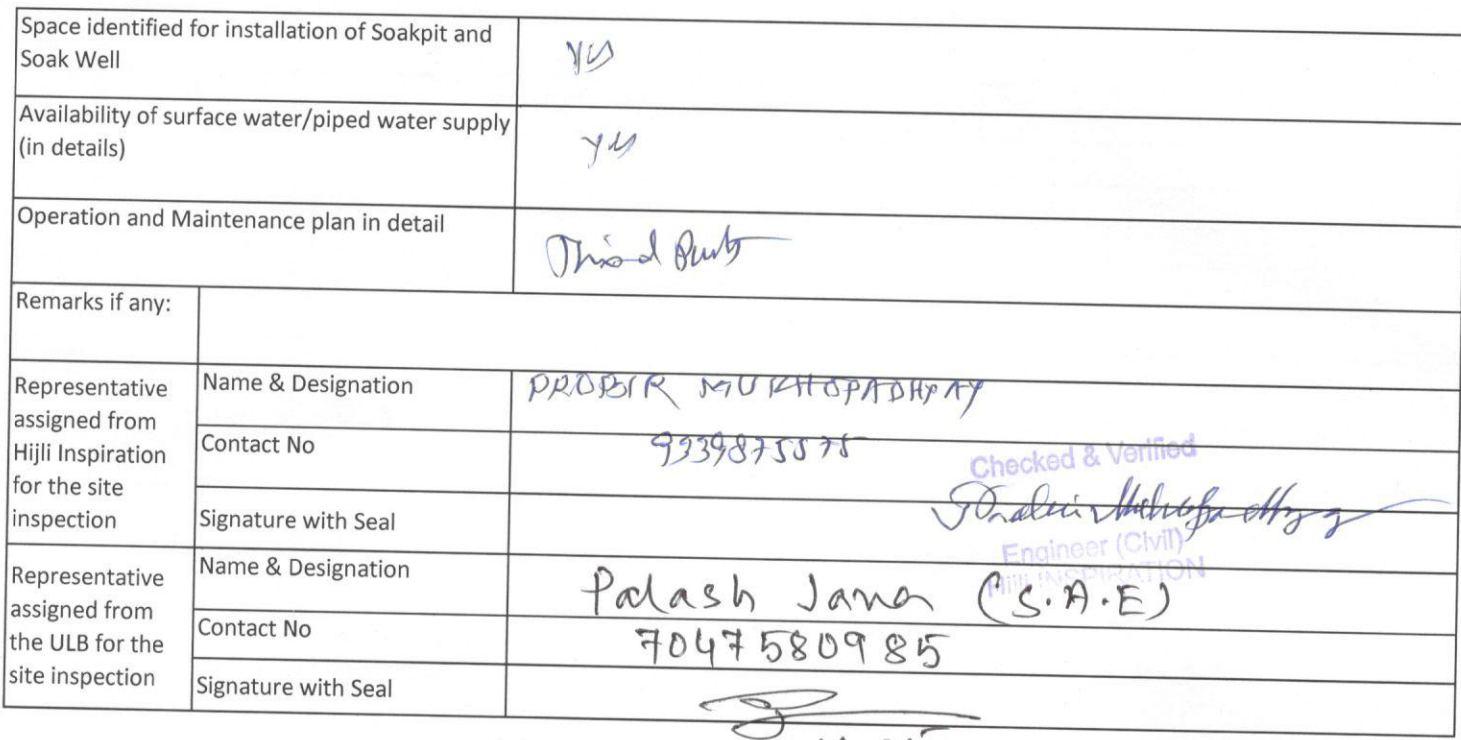 Space identified for installation of Soakpit and
Soak Well
yes
Availability of surface water/piped water supply
(in details)
yes
Operation and Maintenance plan in detail
Third Party
Remarks if any:
Representative
assigned from
Hijli Inspiration
for the site
inspection
Name & Designation
PROBIR MUKHOPADHYAY
Contact No
Checked & Verified
Signature with Seal
Engineer (Civil)
Hijli INSPIRATION
Representative
assigned from
the ULB for the
site inspection
Name & Designation
Palash Jana (S.A.E)
Contact No
7047580985
Signature with Seal